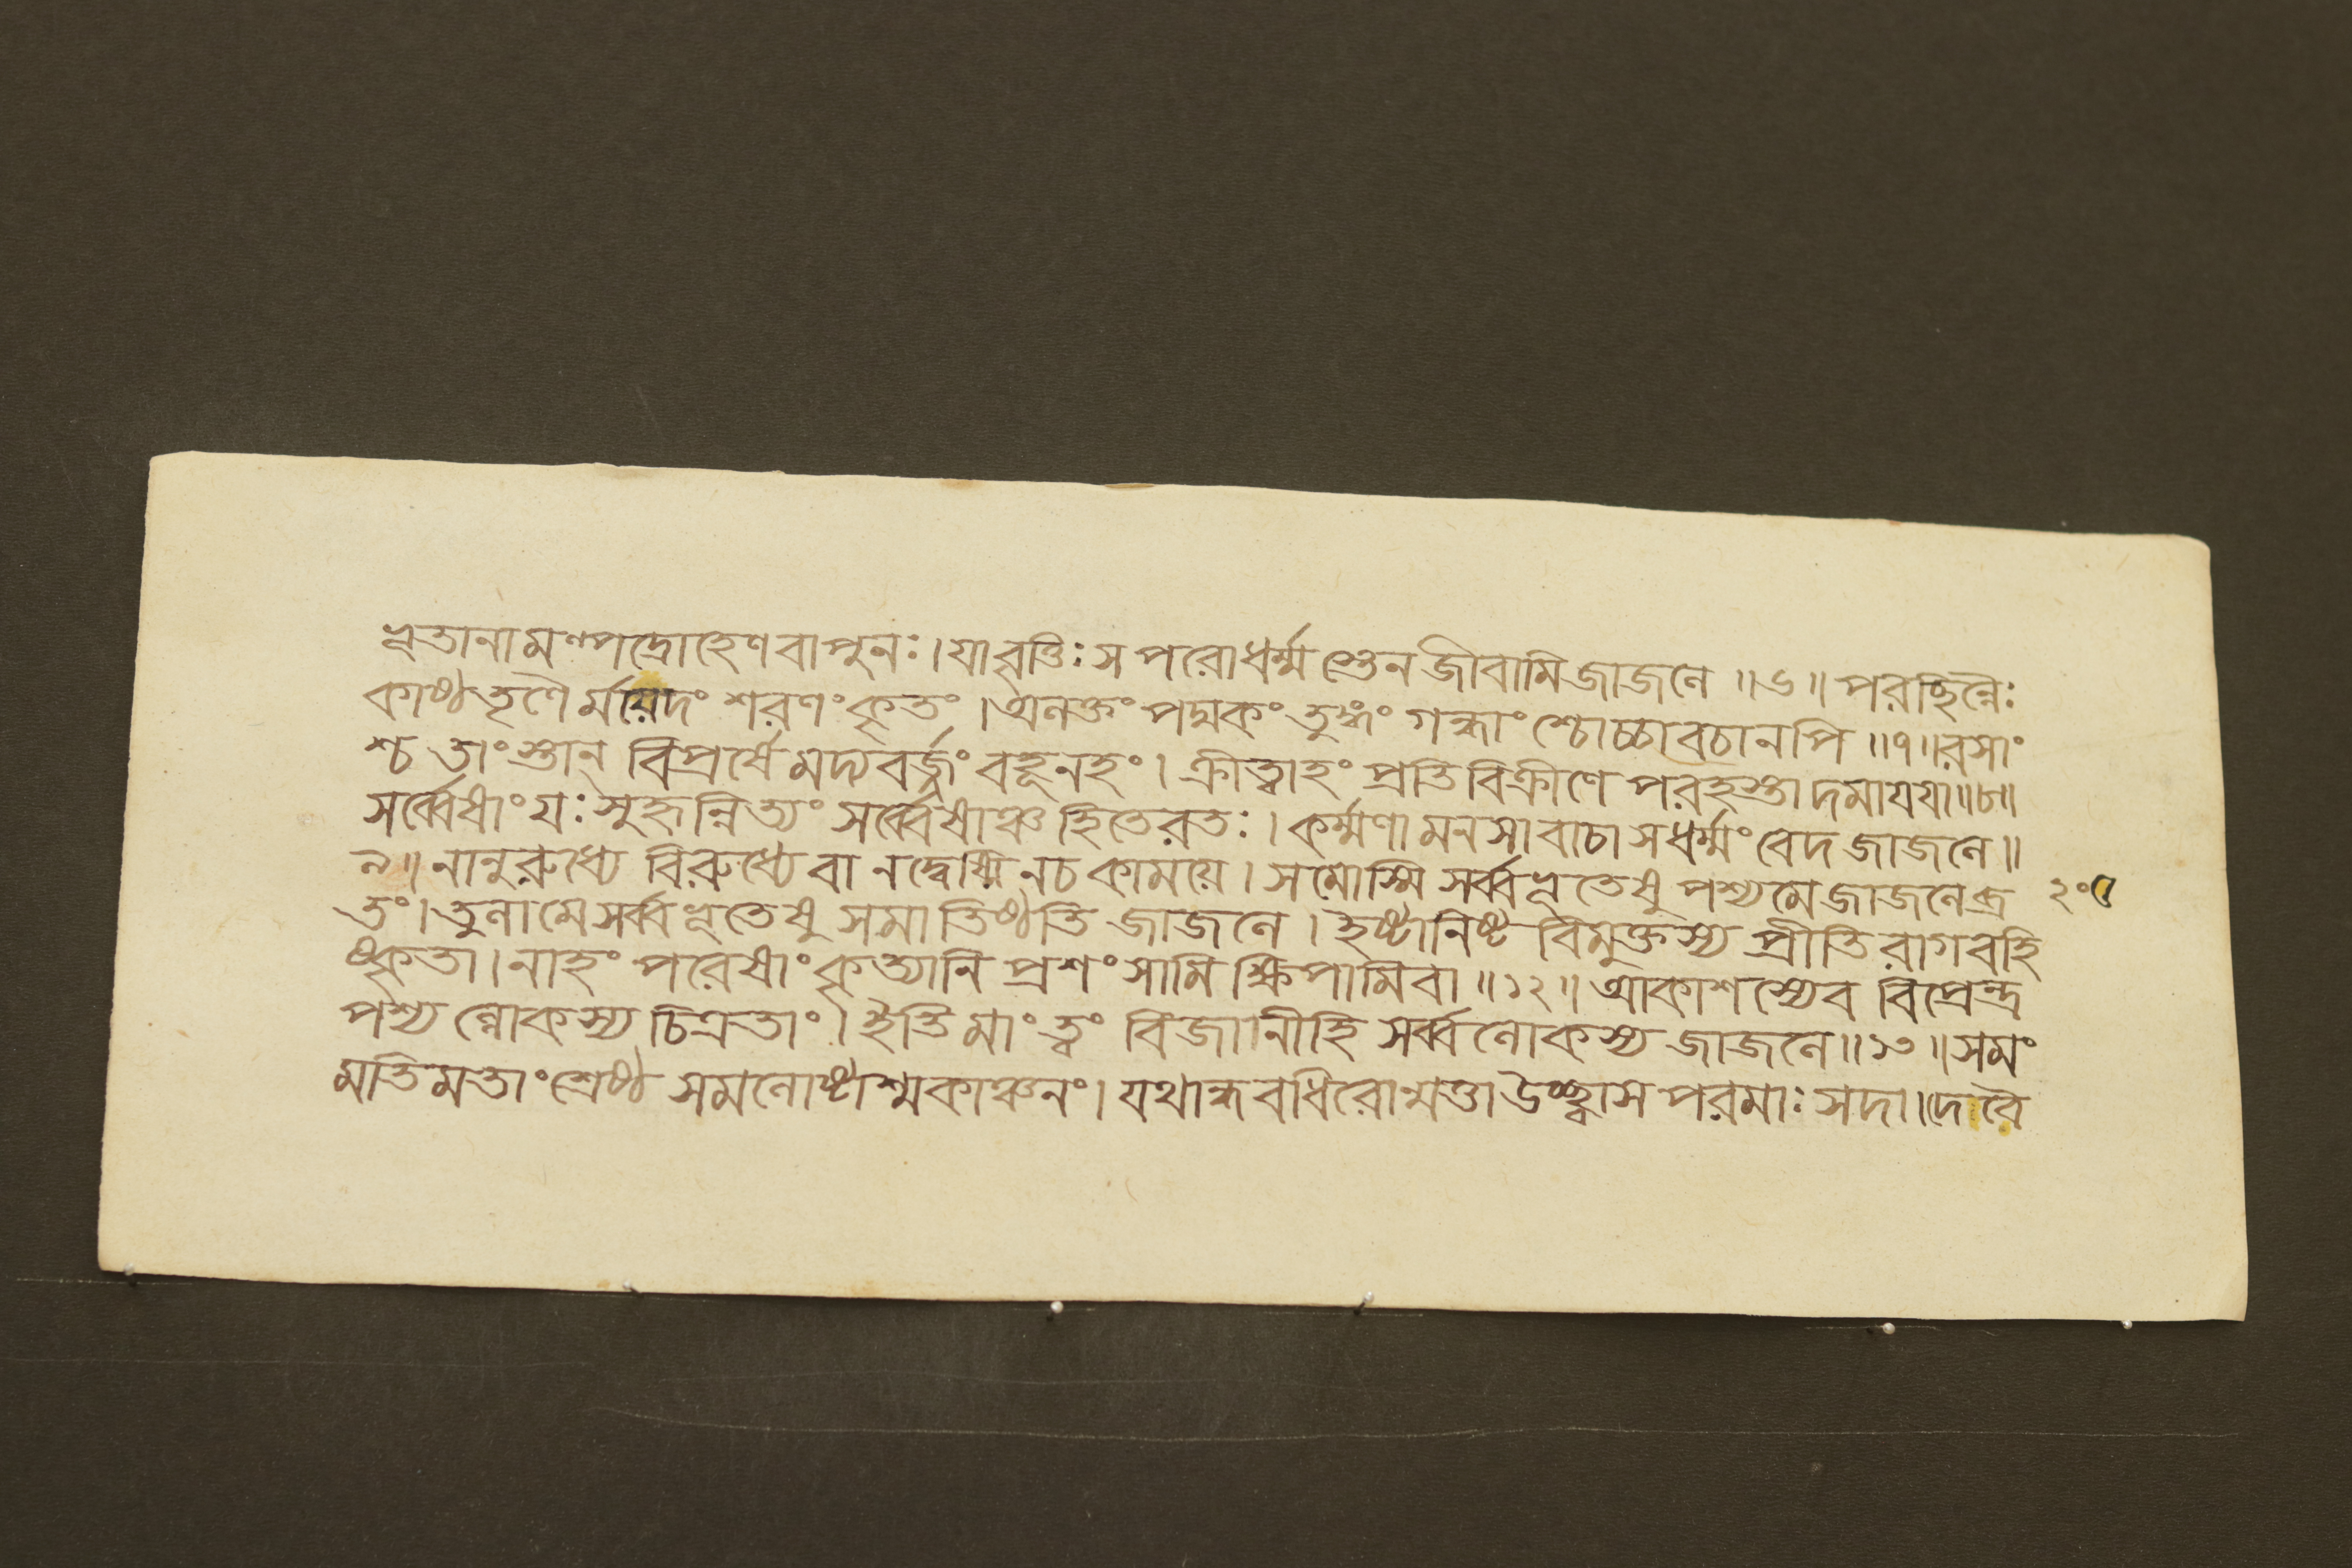 ভূতানামল্পদ্রোহেণ বা পুনঃ। যা বৃত্তিঃ স পরো ধর্ম্মস্তেন জীবামি জাজলে ॥৬॥ পরচ্ছিন্নৈঃ
কাষ্ঠতৃণৈর্ময়েদং শরণং কৃতং। অলক্তং পদ্মকং তুঙ্গং গন্ধাংশ্চোচ্চাবচানপি ॥৭॥ রসাং
শ্চ তাংস্তান্ বিপ্রর্ষে মদ্যবর্জ্জং বহূনহং। ক্রীত্বাহং প্রতিবিক্রীণে পরহস্তাদমায়যা ॥৮॥
সর্ব্বেষাং যঃ সুহৃন্নিত্যং সর্ব্বেষাঞ্চ হিতে রতঃ। কর্ম্মণা মনসা বাচা স ধর্ম্মং বেদ জাজলে ॥
৯॥ নানুরুধ্যে বিরুধ্যে বা ন দ্বেষ্মি ন চ কাময়ে। সমোস্মি সর্ব্বভূতেষু পশ্য মে জাজলে ব্র
তং। তুলা মে সর্ব্বভূতেষু সমা তিষ্ঠতি জাজলে। ইষ্টানিষ্টবিমুক্তস্য প্রীতিরাগবহি
ষ্কৃতা। নাহং পরেষাং কৃত্যানি প্রশংসামি ক্ষিপামি বা ॥১২॥ আকাশস্যেব বিপ্রেন্দ্র
পশ্যল্লোকস্য চিত্রতাং। ইতি মাং ত্বং বিজানীহি সর্ব্বলোকস্য জাজলে ॥১৩॥ সমং
মতিমতাং শ্রেষ্ঠ সমলোষ্টাশ্মকাঞ্চনং। যথান্ধবধিরোন্মত্তা উচ্ছ্বাসপরমাঃ সদা। দেবৈ
২০৫